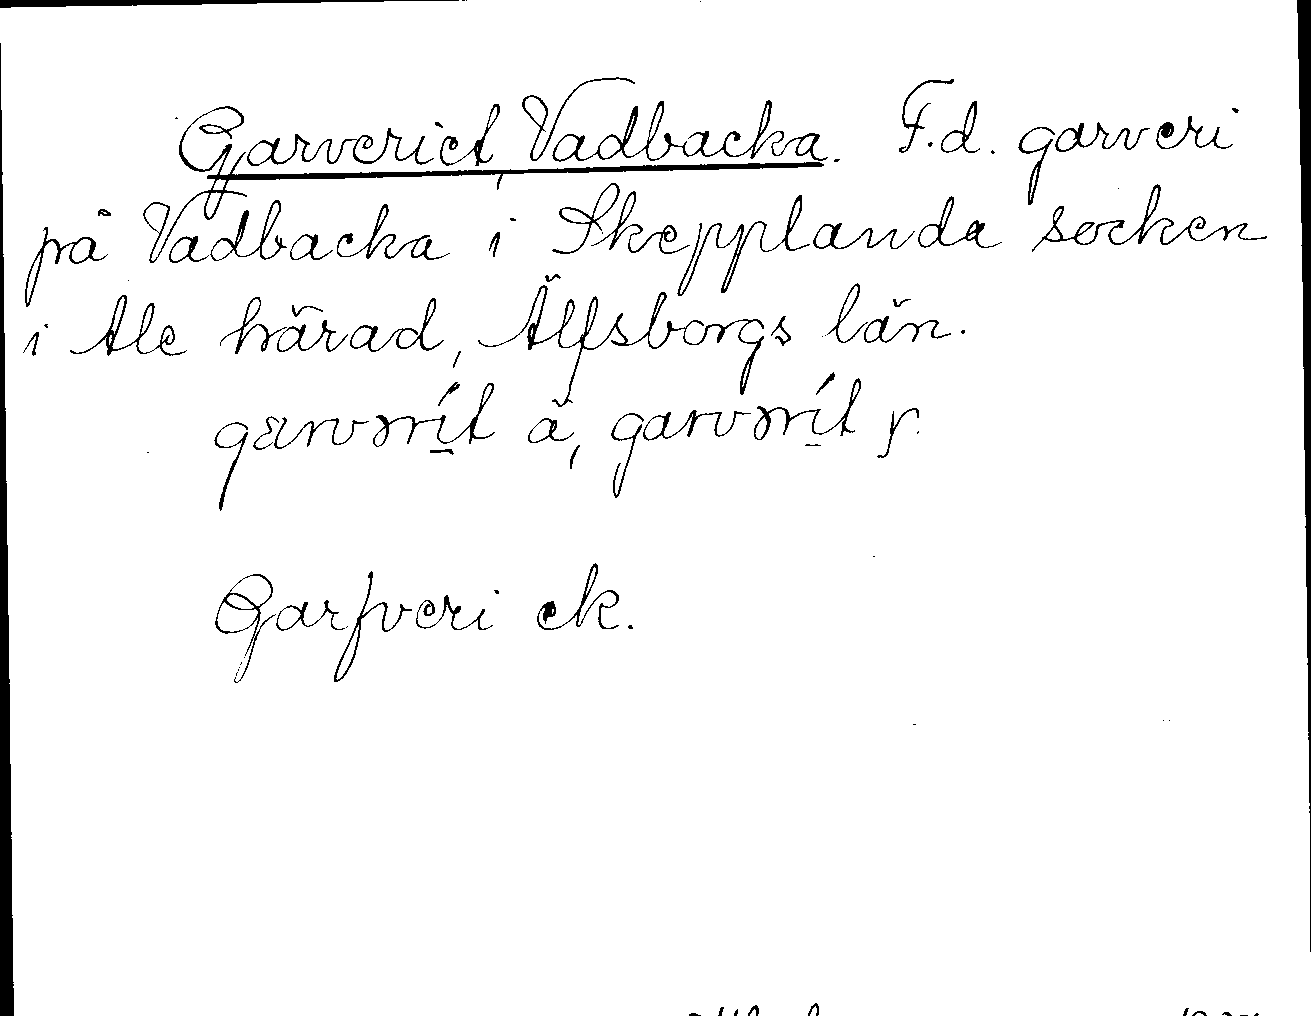 Garveriet, Vadbacka. F.d. garveri
på Vadbacka i Skepplanda socken
i Ale härad, Älfsborgs län.
garvərít ä, garvərít y.
Garfveri ek.